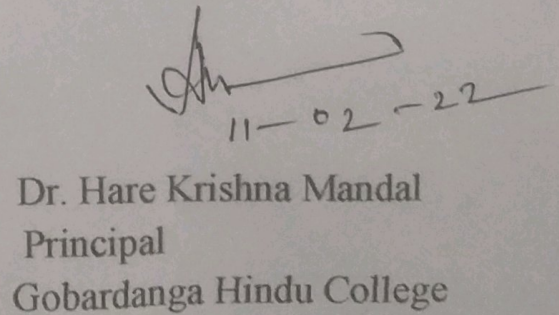 11-02-22
Dr. Hare Krishna Mandal
Principal
Gobardanga Hindu College